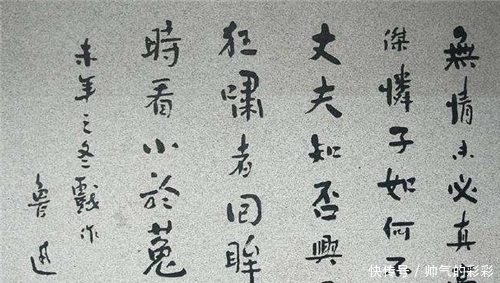 無情未必真
傑憐子如何不
丈夫知否興
狂嘯者回眸
時看小於菟
未年之冬戲作
魯迅
快传号/帅气的彩彩